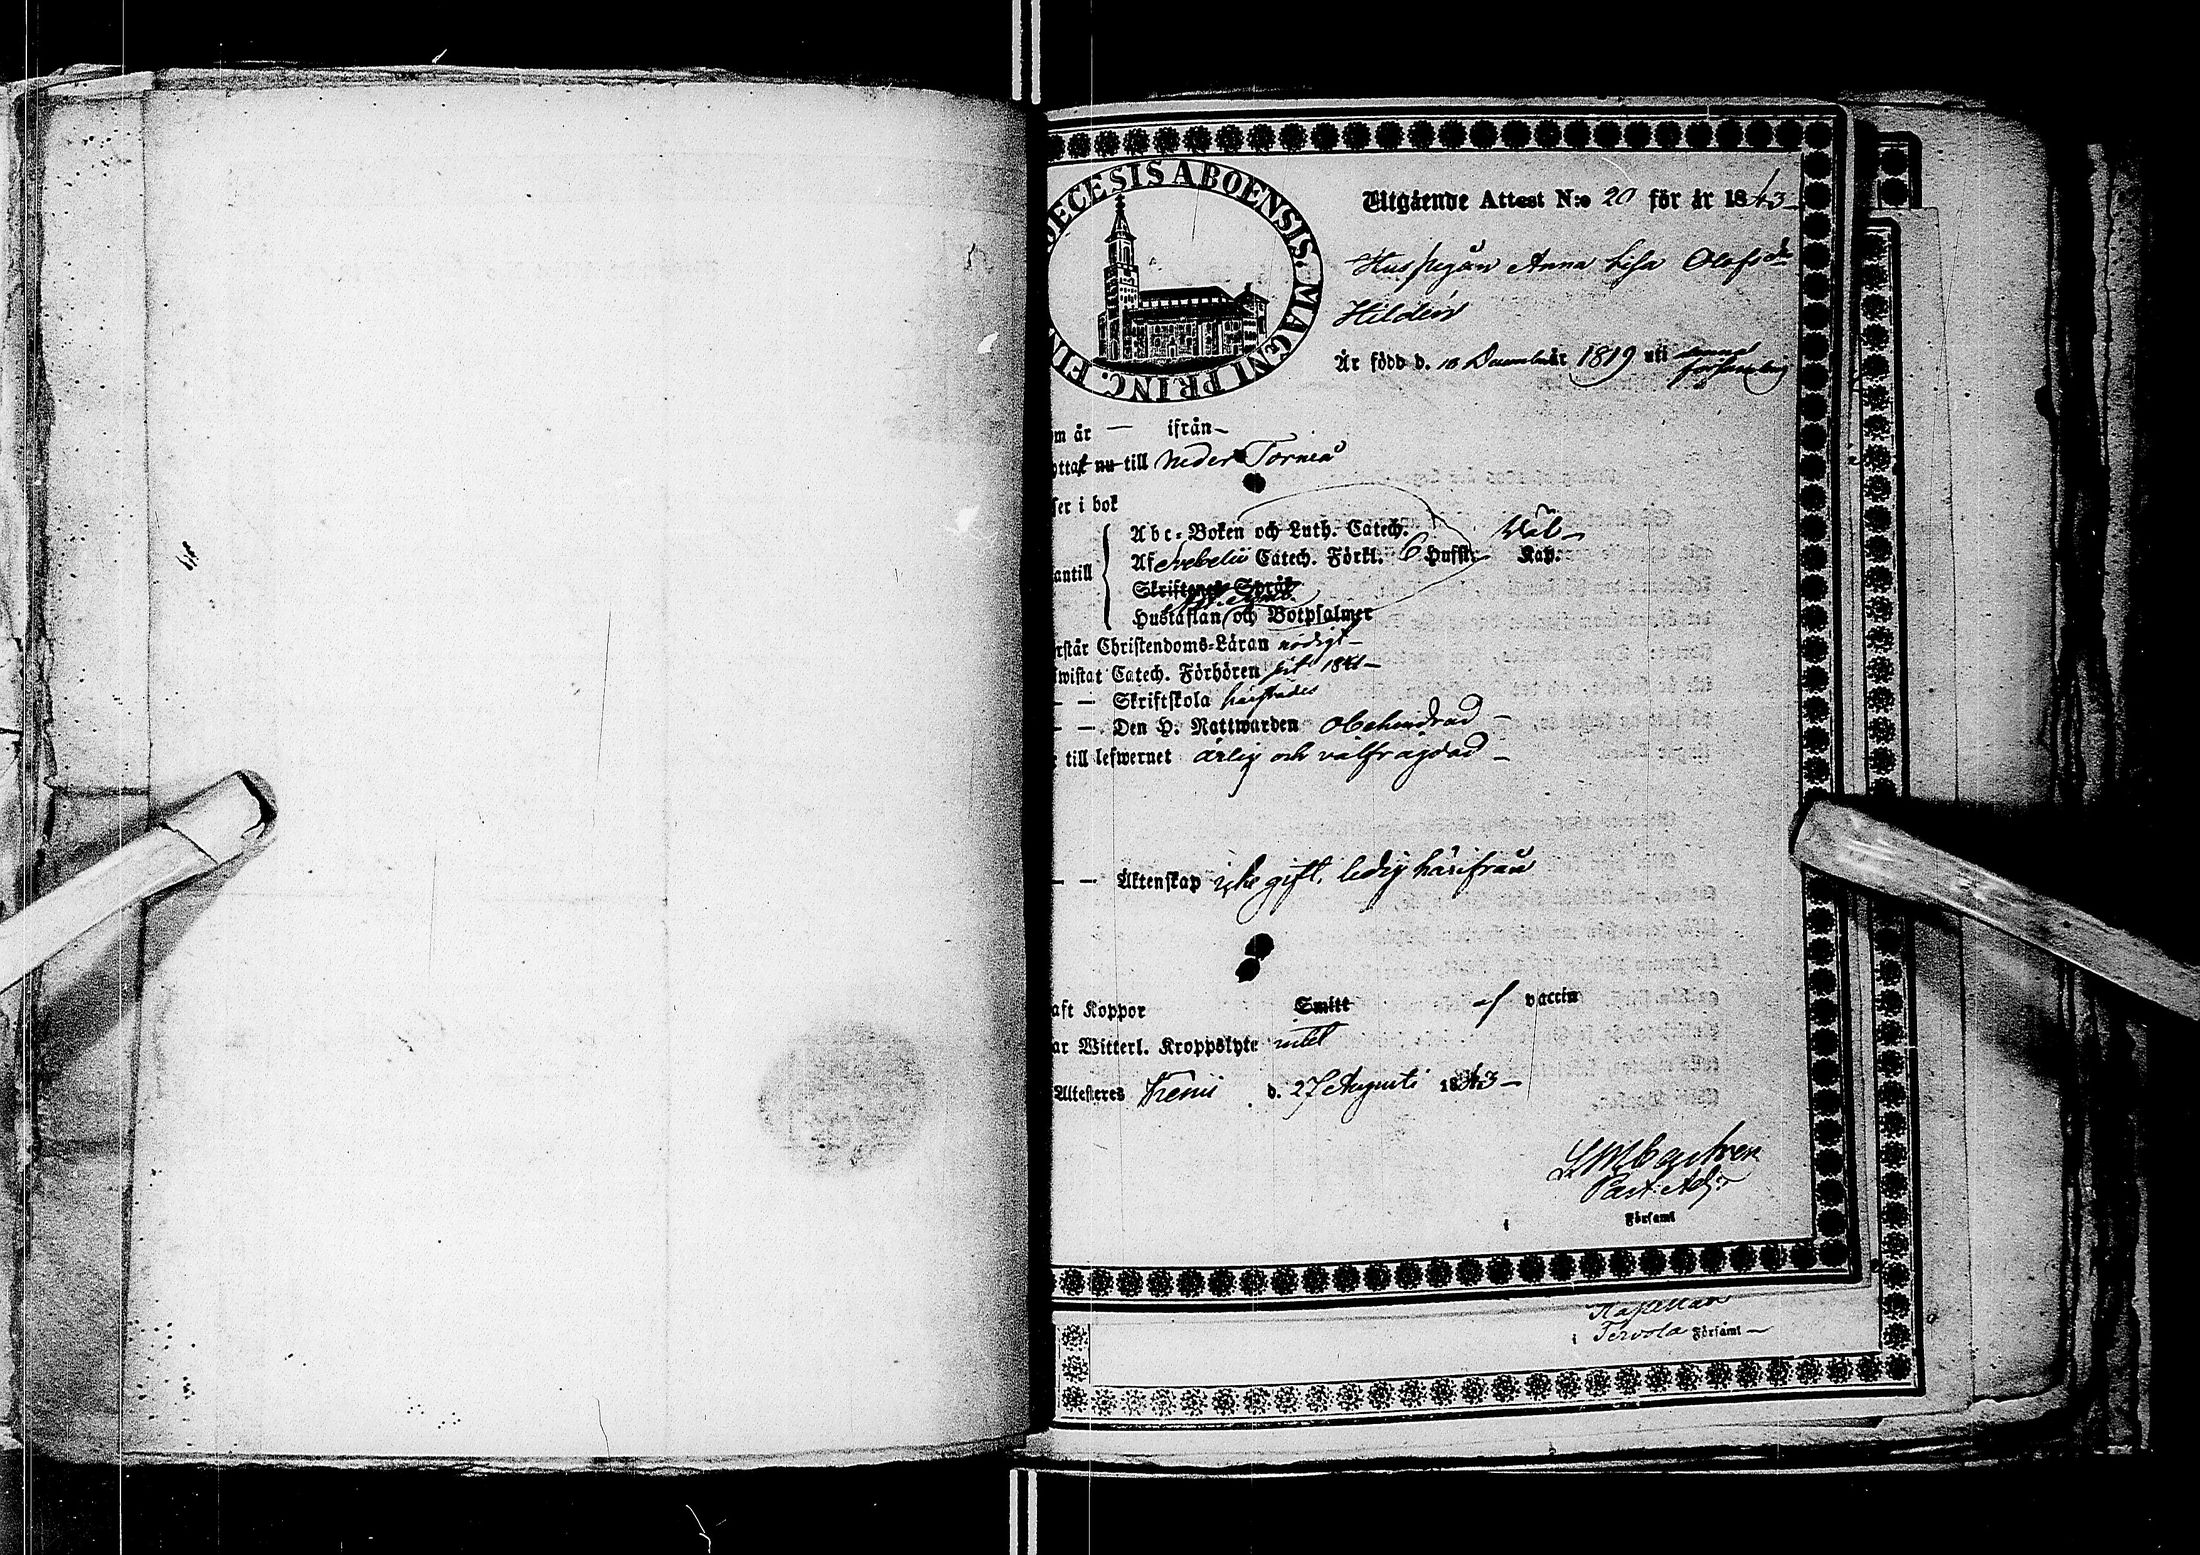 ŒCESIS ABOENSIS. MAGNI PRINC. FIN
Utgående Attest N:o 20 för år 1843
Huspigan Anna Lisa Olofsdr
Hildén
Är född d. 10 December 1819 uti annan församling
om år — ifrån
yttat nu till Neder Torneå
ser i bok
antill
Abc-Boken och Luth. Catech. Väl
Af Svebelii Catech. Förkl. 6 Hufst. Kap.
Skriftenes Språk
Hustaflan och Botpsalmer
rstår Christendoms-Läran nödigt
iwistat Catech. Förhören
— — Skriftskola
— — Den H. Nattwarden obehindrad
till lefwernet ärlig och välfrägdad
— — Äktenskap icke gift, ledig härifrån
aft Koppor Smitt af vaccin
ar Witterl. Kroppslyte intet
Attesteres Kemi d. 27 Augusti 1843
Past. Adj.
i Församl
Kapellan
i Tervola Församl